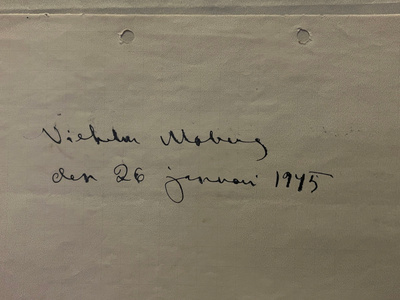 Vilhelm Moberg
den 26 januari 1945